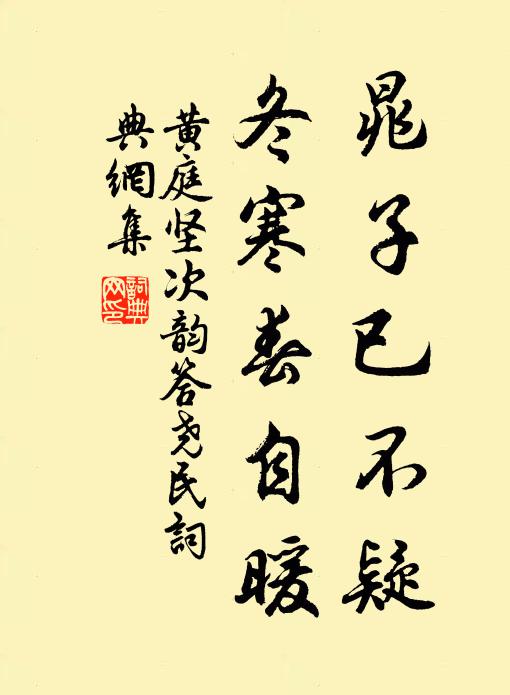 晁子已不疑
冬寒春自暖
黄庭坚次韵答尧民詞
典網集
詞典
网印